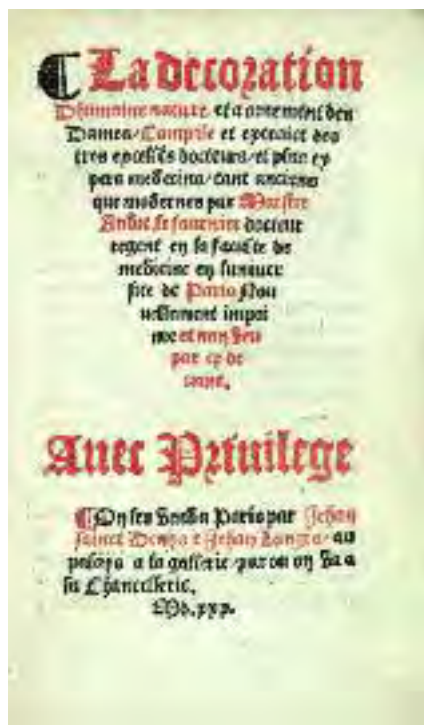 La decoration
Dhumaine nature et aornement des
Dames, Compile et extraict des
tres excellẽs docteurs, et plus ex
pers medecins, tant anciens
que modernes par Maistre
Andre le fournier docteur
regent en la faculte de
medicine en luniuer
site de Paris Nou
uellement impri
mee et non veu
par cy de
uant.
Auec Priuilege
On les vend a Paris par Jehan
sainct Denys et Jehan Longis, au
palays a la gallerie par ou on va a
la Chancellerie.
M.D.xxx.